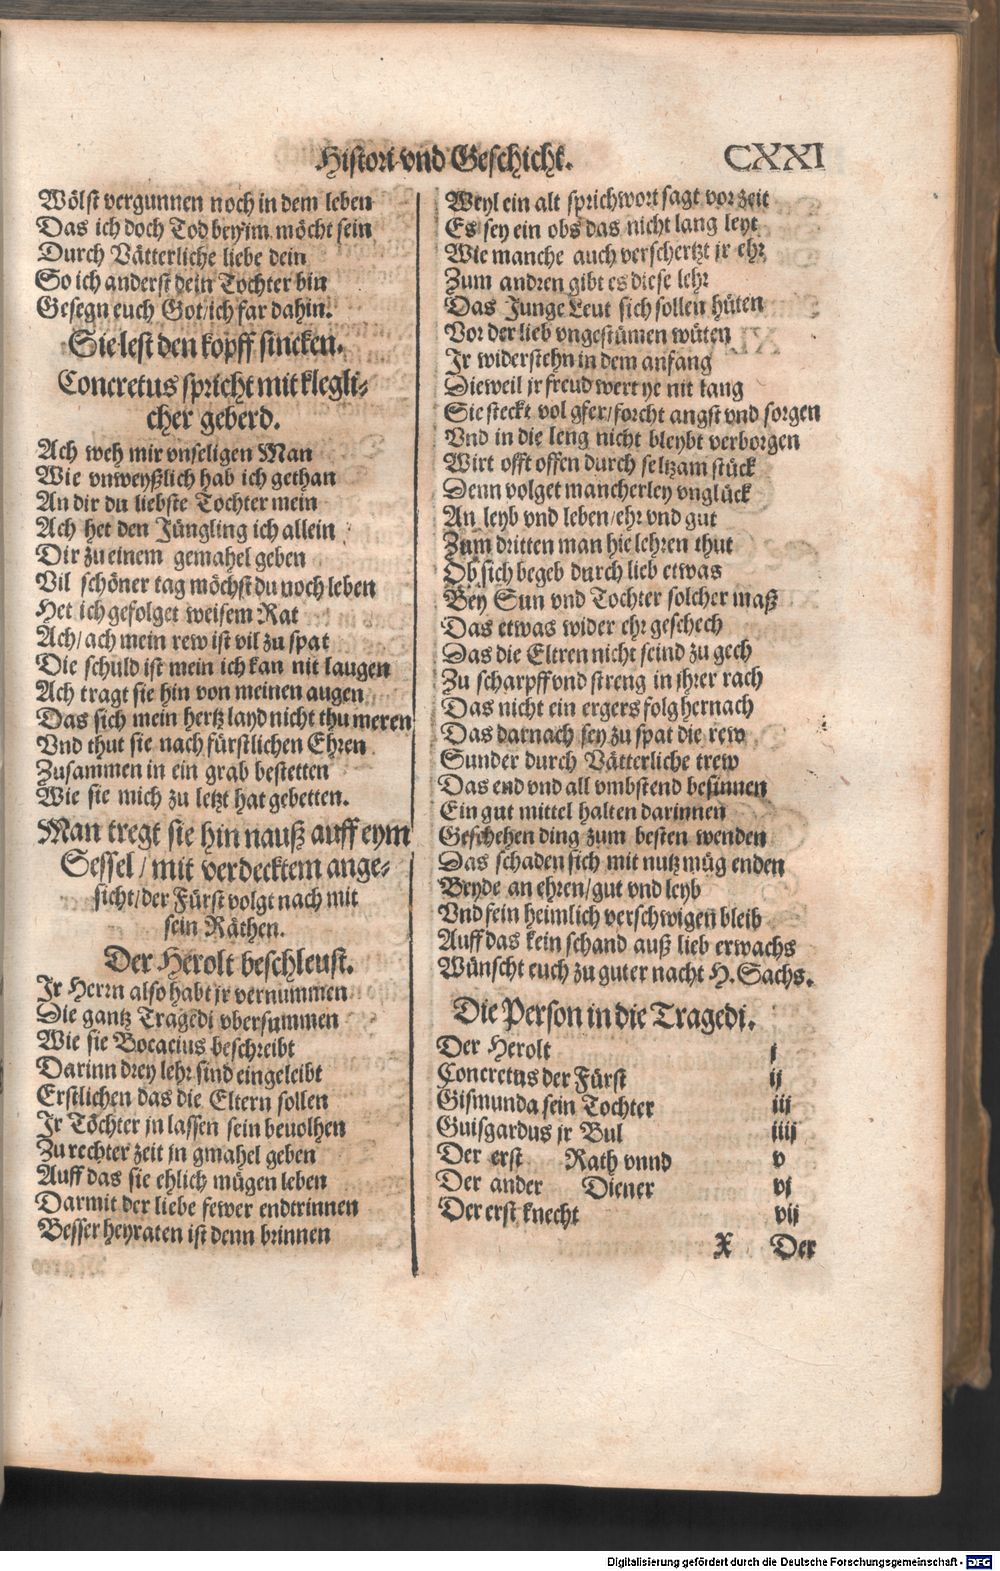 Histori vnd Geschicht. CXXI
Wölst vergunnen noch in dem leben
Das ich doch Tod bey im möcht sein
Durch Vätterliche liebe dein
So ich anderst dein Tochter bin
Gesegn euch Got/ich far dahin.
Sie lest den kopff sincken.
Concretus spricht mit klegli-
cher geberd.
Ach weh mir vnseligen Man
Wie vnweyßlich hab ich gethan
An dir du liebste Tochter mein
Ach het den Jüngling ich allein
Dir zu einem gemahel geben
Vil schöner tag möchst du noch leben
Het ich gefolget weisem Rat
Ach/ach mein rew ist vil zu spat
Die schuld ist mein ich kan nit laugen
Ach tragt sie hin von meinen augen
Das sich mein hertzlayd nicht thu meren
Vnd thut sie nach fürstlichen Ehren
Zusammen in ein grab bestetten
Wie sie mich zu letzt hat gebetten.
Man tregt sie hin nauß auff eym
Sessel/mit verdecktem ange-
sicht/der Fürst volgt nach mit
sein Räthen.
Der Herolt beschleust.
Jr Herrn also habt jr vernummen
Die gantz Tragedi vbersummen
Wie sie Bocacius beschreibt
Darinn drey lehr sind eingeleibt
Erstlichen das die Eltern sollen
Jr Töchter jn lassen sein beuolhen
Zu rechter zeit jn gmahel geben
Auff das sie ehlich mügen leben
Darmit der liebe fewer endtrinnen
Besser heyraten ist denn brinnen
Weyl ein alt sprichwort sagt vor zeit
Es sey ein obs das nicht lang leyt
Wie manche auch verschertzt jr ehr
Zum andren gibt es diese lehr
Das Junge Leut sich sollen hüten
Vor der lieb vngestümen wüten
Jr widerstehn in dem anfang
Dieweil jr freud wert ye nit lang
Sie steckt vol gfer/forcht angst vnd sorgen
Vnd in die leng nicht bleybt verborgen
Wirt offt offen durch seltzam stück
Denn volget mancherley vnglück
An leyb vnd leben/ehr vnd gut
Zum dritten man hie lehren thut
Ob sich begeb durch lieb etwas
Bey Sun vnd Tochter solcher maß
Das etwas wider ehr geschech
Das die Eltren nicht seind zu gech
Zu scharpff vnd streng in ihrer rach
Das nicht ein ergers folg hernach
Das darnach sey zu spat die rew
Sunder durch Vätterliche trew
Das end vnd all vmbstend besinnen
Ein gut mittel halten darinnen
Geschehen ding zum besten wenden
Das schaden sich mit nutz müg enden
Beyde an ehren/gut vnd leyb
Vnd fein heimlich verschwigen bleib
Auff das kein schand auß lieb erwachs
Wünscht euch zu guter nacht H. Sachs.
Die Person in die Tragedi.
Der Herolt j
Concretus der Fürst ij
Gismunda sein Tochter iij
Guisgardus jr Bul iiij
Der erst Rath vnnd v
Der ander Diener vj
Der erst knecht vij
X Der
Digitalisierung gefördert durch die Deutsche Forschungsgemeinschaft - DFG